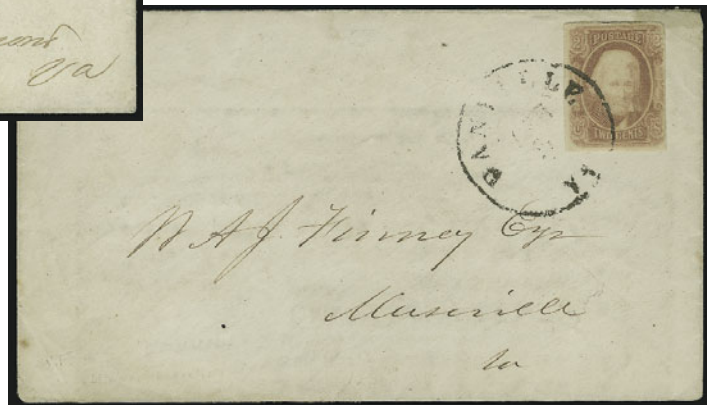 mond
Va
POSTAGE
TWO CENTS
DANVILLE VA
W A J. Finney Esqr
Museville
Va